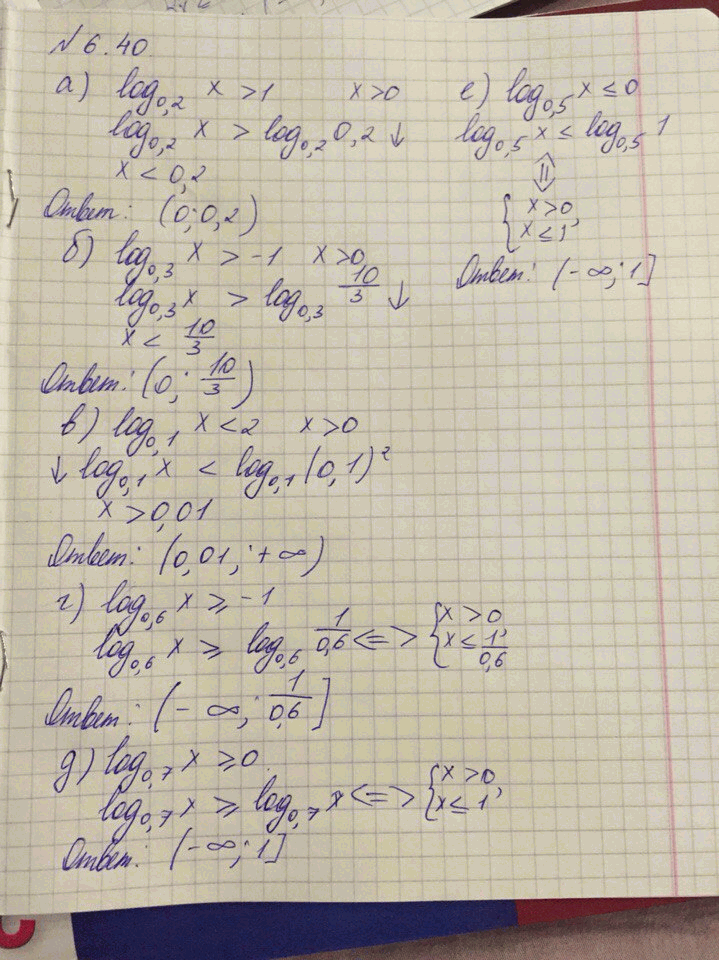 № 6.40
а) log₀,₂ x > 1   x > 0
log₀,₂ x > log₀,₂ 0,2 ↓
x < 0,2
Ответ: (0; 0,2)
б) log₀,₃ x > -1   x > 0
log₀,₃ x > log₀,₃ 10/3 ↓
x < 10/3
Ответ: (0; 10/3)
в) log₀,₁ x < 2   x > 0
↓ log₀,₁ x < log₀,₁ (0,1)²
x > 0,01
Ответ: (0,01; +∞)
г) log₀,₆ x ⩾ -1
log₀,₆ x ⩾ log₀,₆ 1/0,6 <=> { x > 0, x ≤ 1/0,6
Ответ: (-∞; 1/0,6]
д) log₀,₇ x ⩾ 0.
log₀,₇ x ⩾ log₀,₇ x <=> { x > 0, x ≤ 1
Ответ: (-∞; 1]
е) log₀,₅ x ≤ 0
log₀,₅ x ≤ log₀,₅ 1
⇕
{ x > 0, x ≤ 1
Ответ: (-∞; 1]